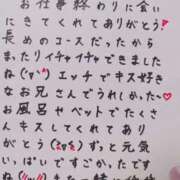 お仕事終わりに会い
にきてくれてありがとう!
長めのコースだったから
まったりイチャイチャできました
ね(˘³˘)エッチでキス好き
なお兄さんでうれしかった~♡
お風呂やベットでたくさ
んキスしてくれてあり
がとう(≧з≦)ずっと元気
いっぱいですごかったです
ね(〃∀〃)